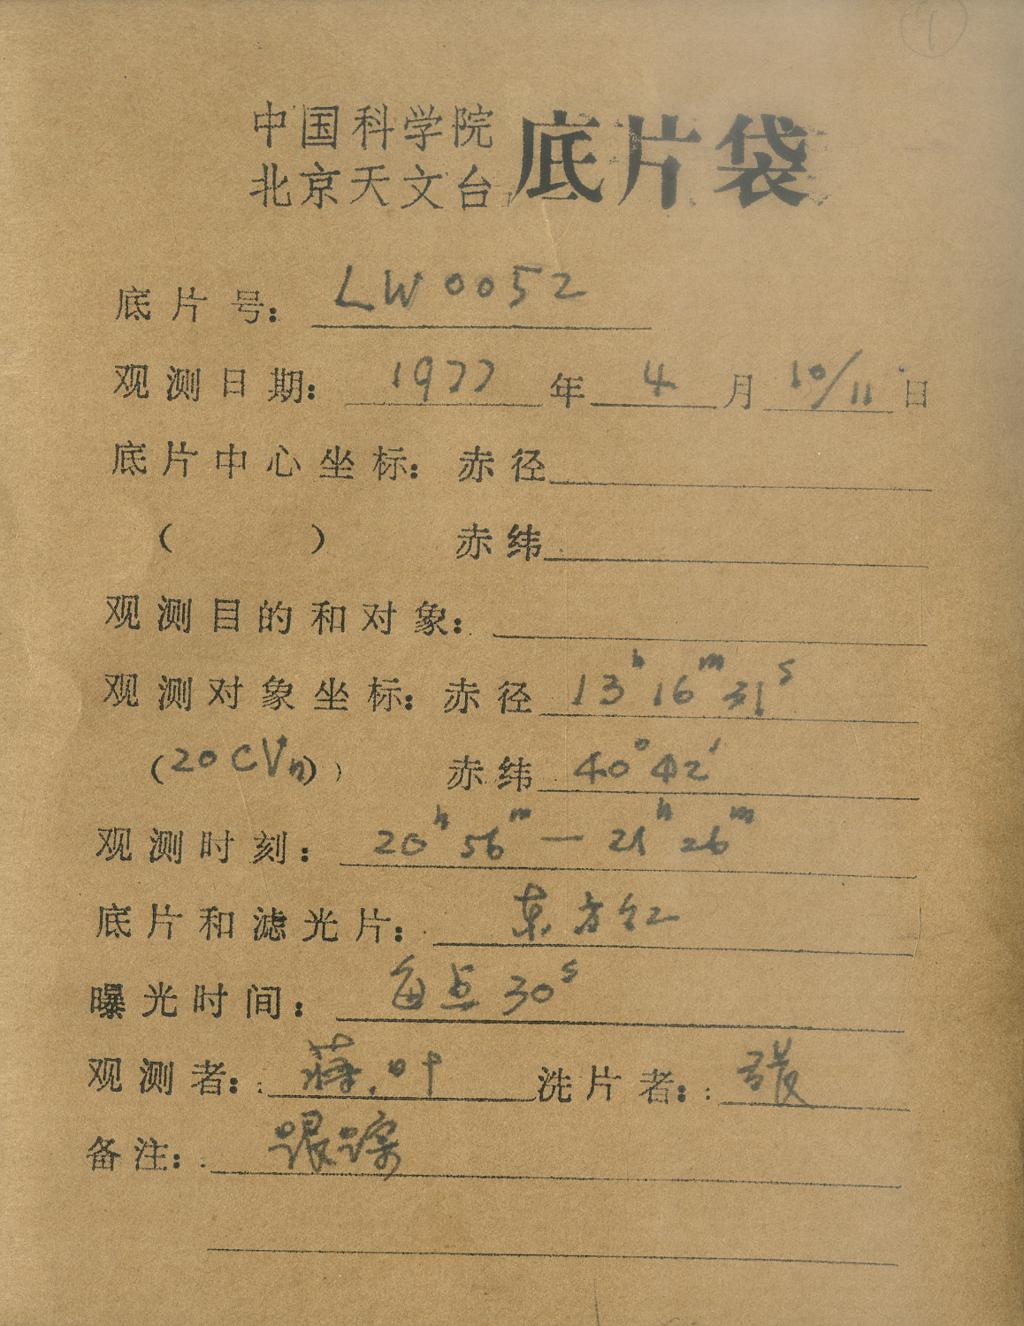 中国科学院
北京天文台
底片袋
底片号: LW0052
观测日期: 1977 年 4 月 10/11 日
底片中心坐标: 赤径
( ) 赤纬
观测目的和对象:
观测对象坐标: 赤径 13h16m31s
(20 CVn) 赤纬 40°42′
观测时刻: 20h56m — 21h26m
底片和滤光片: 东方红
曝光时间: 每点 30s
观测者: 蒋, 叶 洗片者:
备注: 跟踪